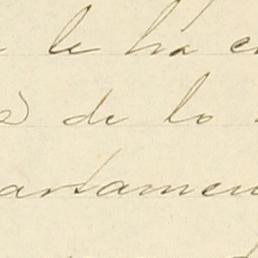 le ha
de lo
artamen